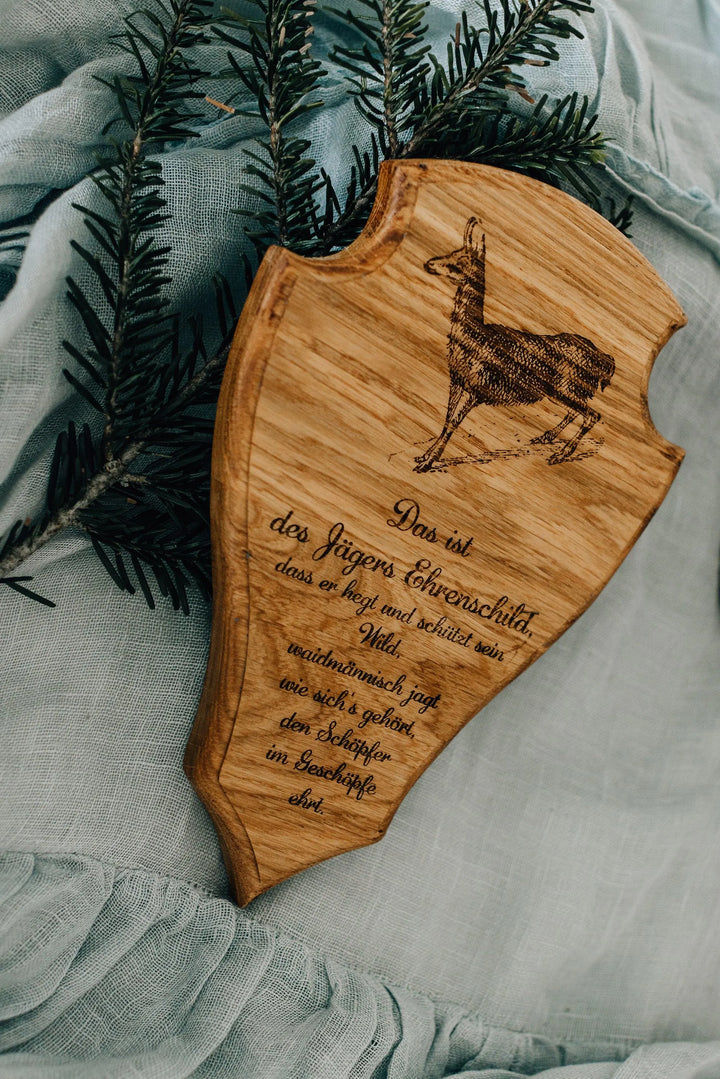 Das ist
des Jägers Ehrenschild,
dass er hegt und schützt sein
Wild,
waidmännisch jagt
wie sich's gehört,
den Schöpfer
im Geschöpfe
ehrt.